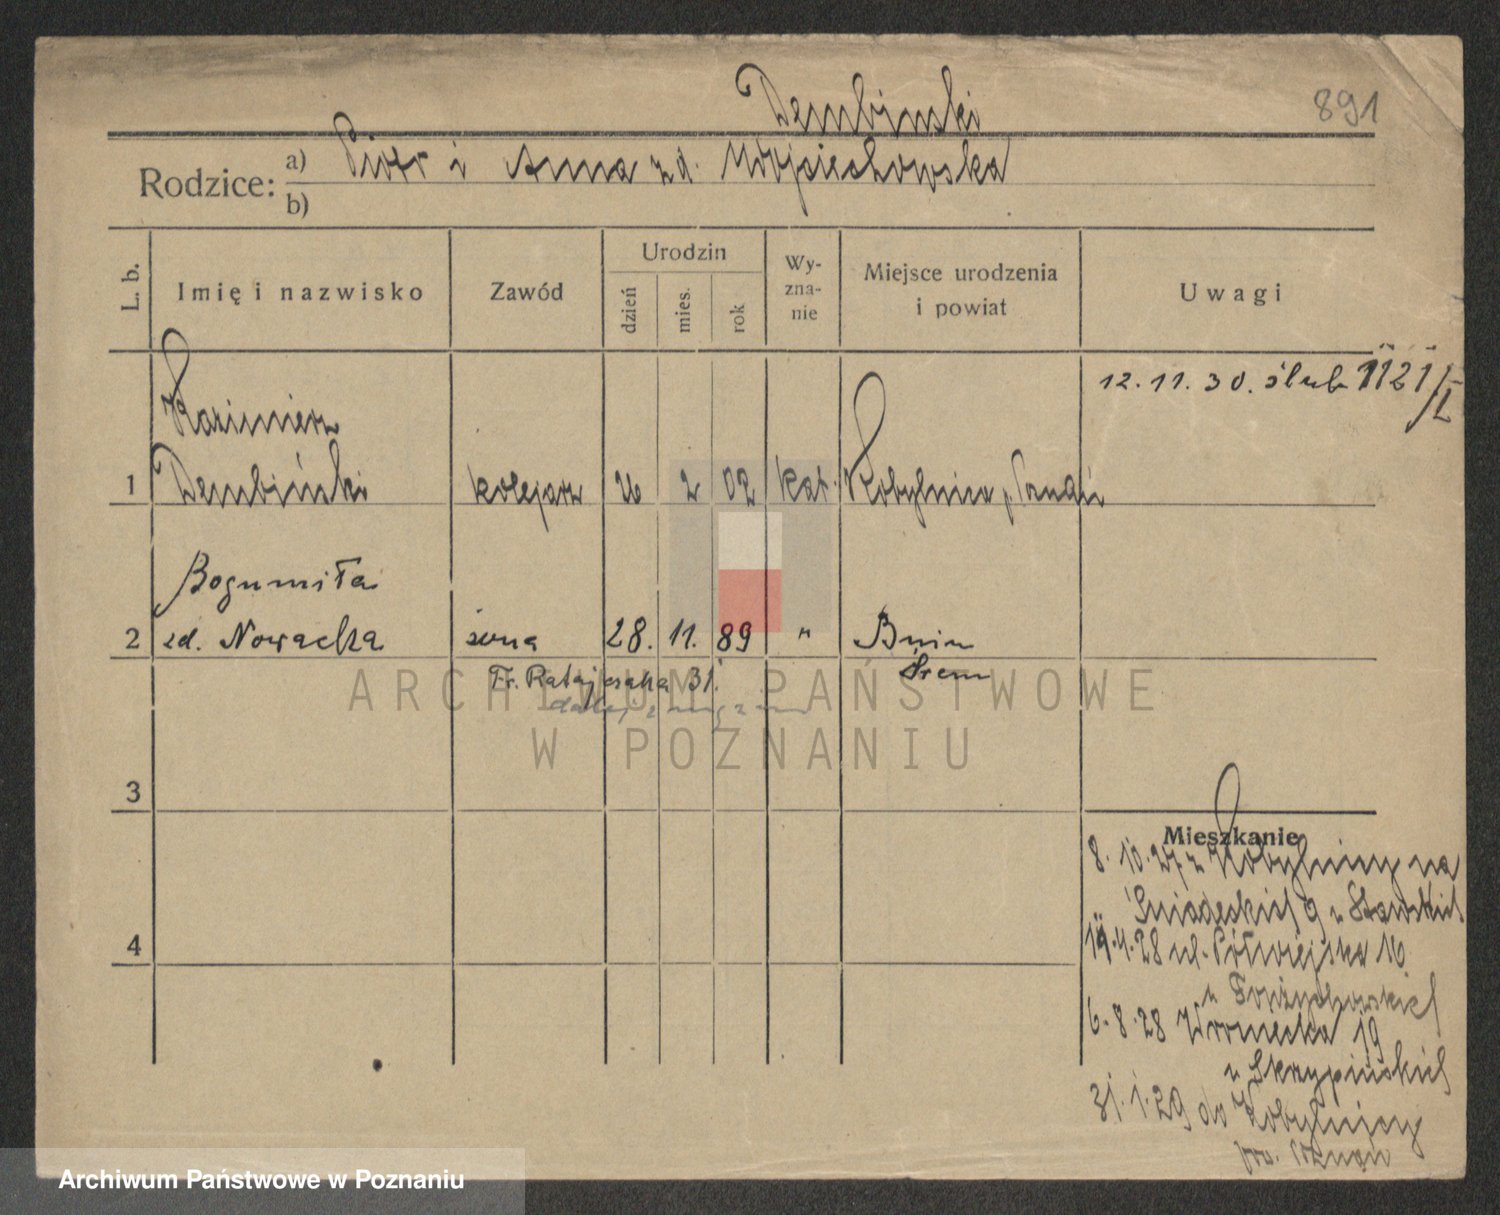 Dembinski
891
Rodzice:
a) Piotr i Anna zd. Wojciechowska
b)
L. b.
Imię i nazwisko
Zawód
Urodzin
dzień
mies.
rok
Wy-
zna-
nie
Miejsce urodzenia
i powiat
Uwagi
12. 11. 30. ślub 1121/I
Kazimierz
1 Dembiński kolejarz 26 2 02 kat. Kobylnica p. Poznań
Bogumiła
2 zd. Nowacka żona 28. 11. 89 " Bnin
Śrem
Fr. Ratajczaka 31.
dalej z mężem
ARCHIWUM PAŃSTWOWE
W POZNANIU
3
4
Mieszkanie
8. 10. 27 z Kobylnicy na
Śniadeckich 9 u Sławskich
19. 4. 28 ul. Półwiejska 16
u
6. 8. 28 Wroniecka 19
u Skrzypińskich
31. 1. 29 do Kobylnicy
pow. Poznań
Archiwum Państwowe w Poznaniu